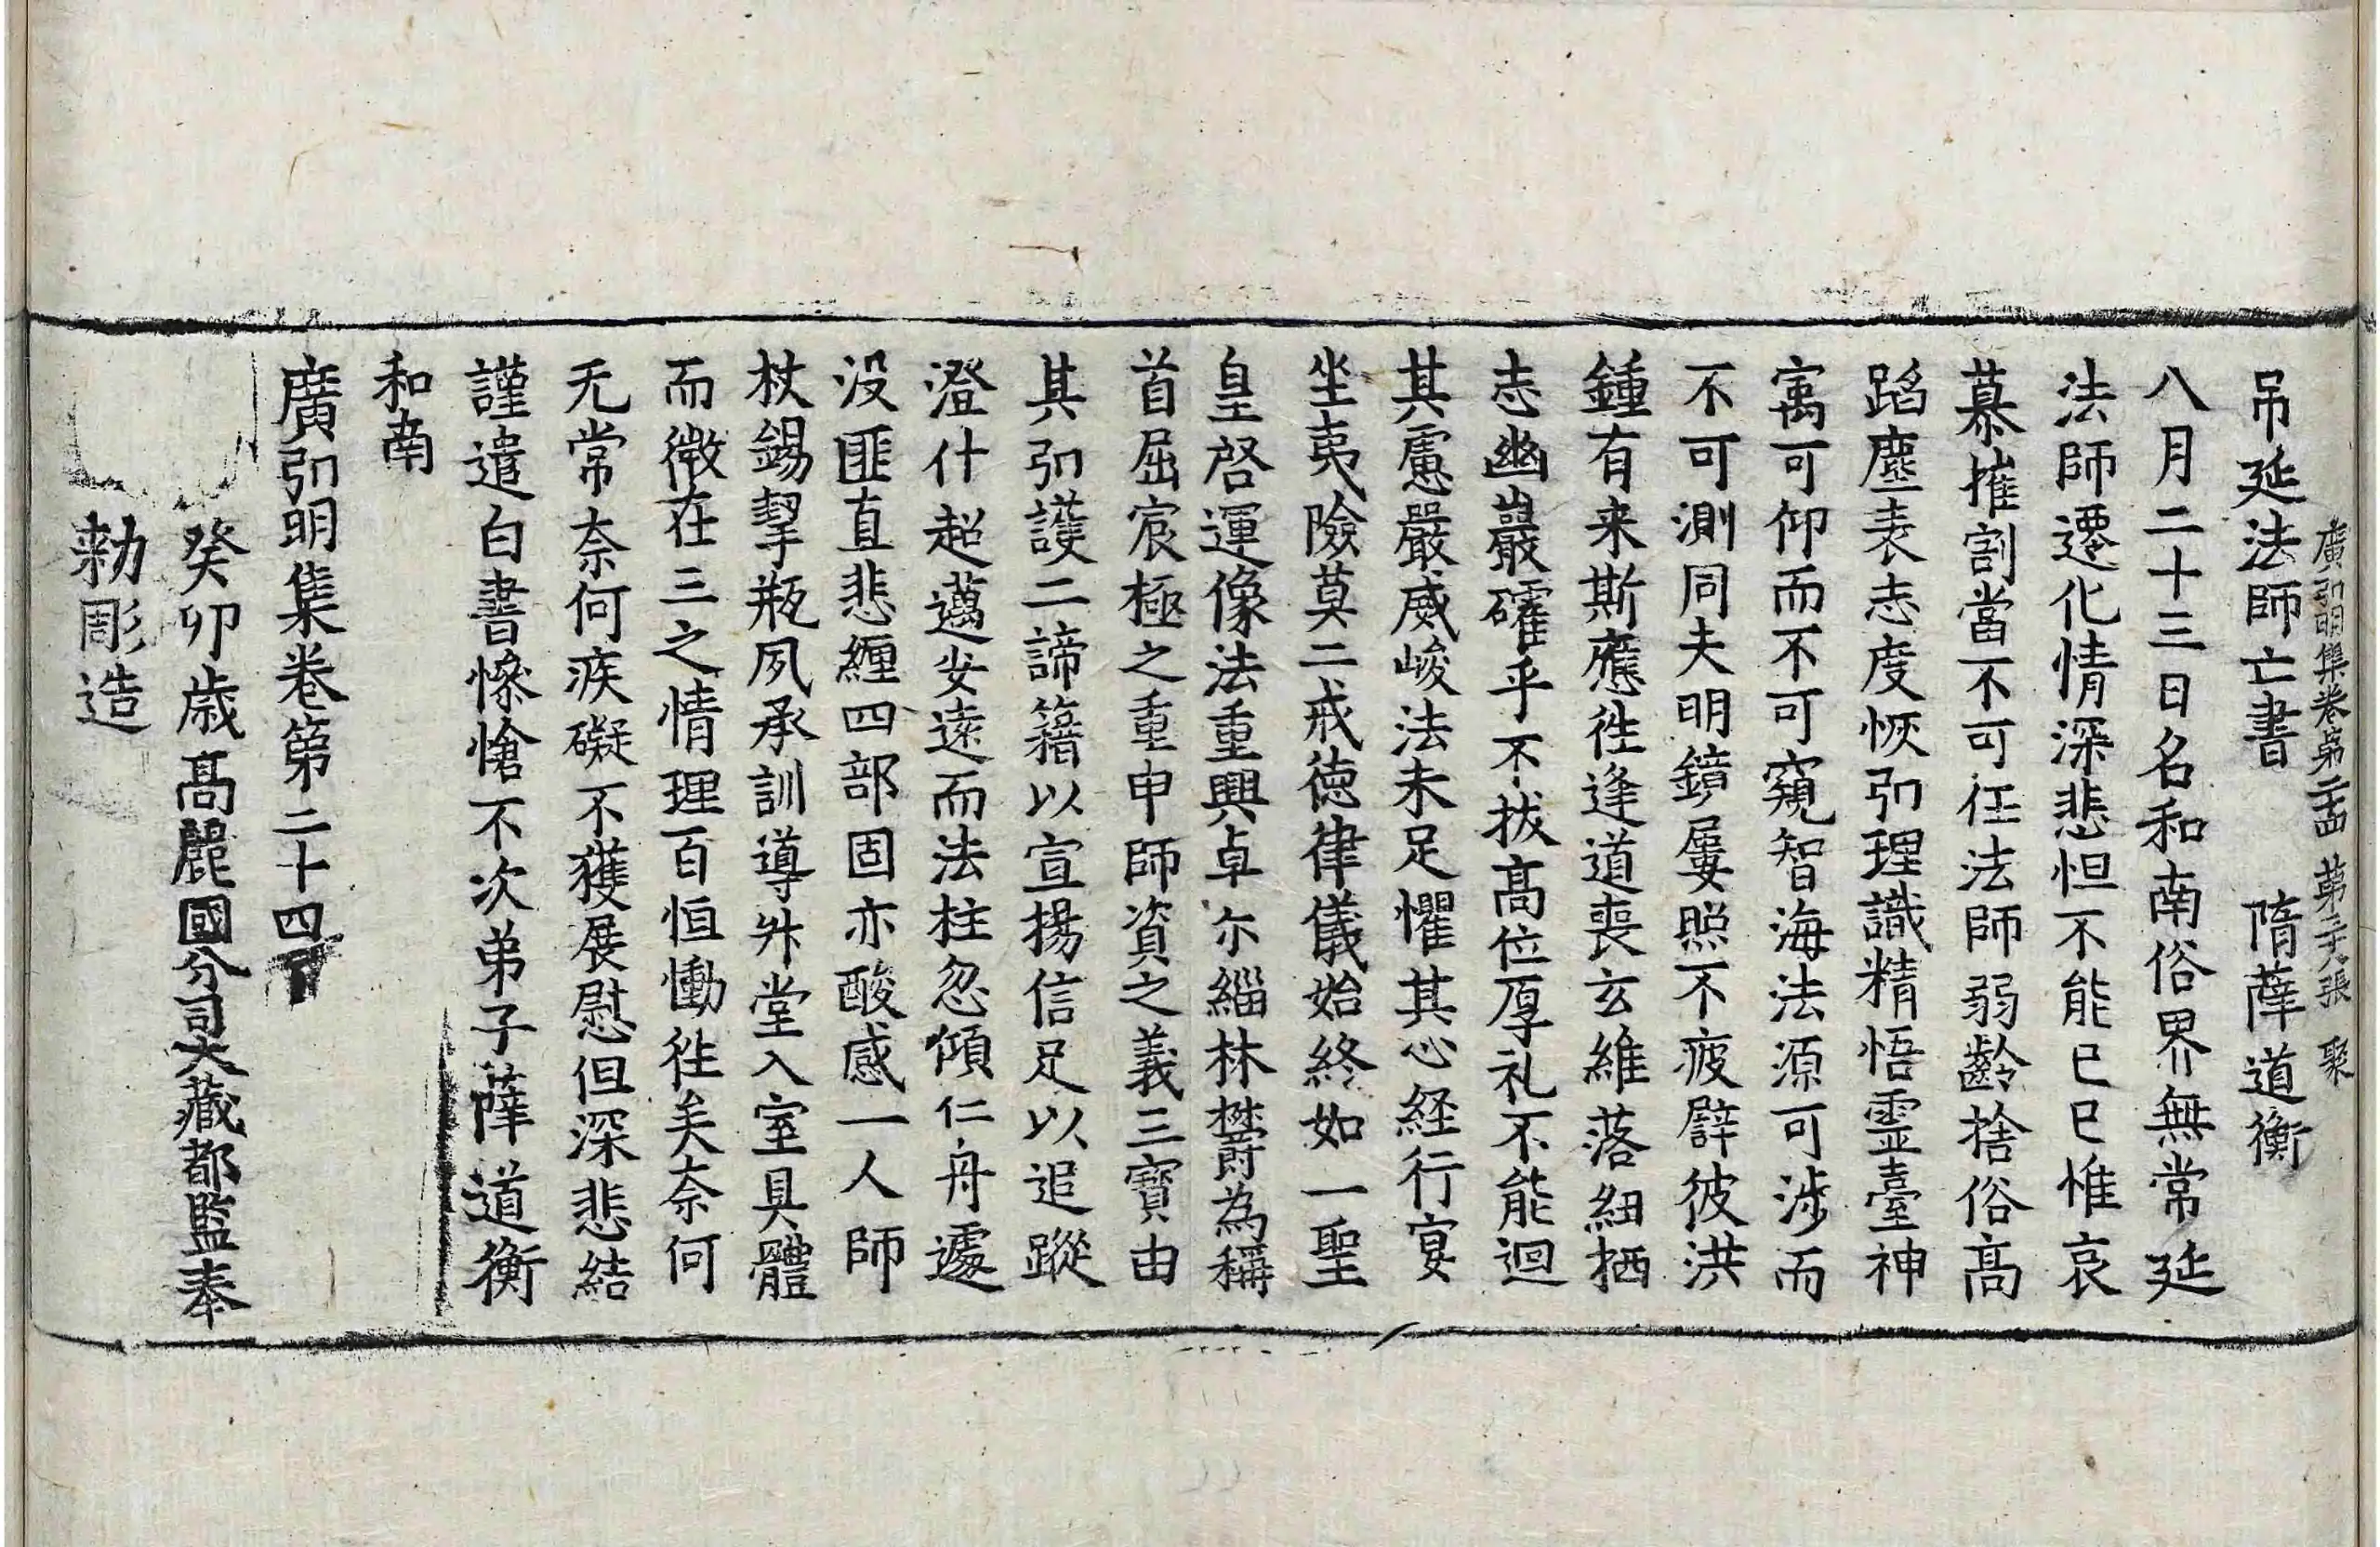 廣弘明集卷第二十四 第二十八張 聚
吊延法師亡書 隋薩道衡
八月二十三日名和南俗界無常延
法師遷化情深悲怛不能已已惟哀
慕摧割當不可任法師弱齡捨俗高
蹈塵表志度恢弘理識精悟靈臺神
㝢可仰而不可窺智海法源可涉而
不可測同夫明鏡屢照不疲譬彼洪
鍾有来斯應徃逢道喪玄維落紐栖
志幽巖確乎不拔髙位厚礼不能迴
其慮嚴威峻法未足懼其心経行宴
坐夷險莫二戒德律儀始終如一聖
皇啓運像法重興卓尒緇林欝為稱
首屈宸極之重申師資之義三寶由
其弘護二諦籍以宣揚信足以追蹤
澄什超邁安遠而法柱忽傾仁舟遽
没匪直悲纒四部固亦酸感一人師
杖錫挈瓶夙承訓導升堂入室具體
而微在三之情理百恒慟徃矣奈何
无常奈何疾礙不獲展慰但深悲結
謹遣白書慘愴不次弟子薩道衡
和南
廣弘明集卷第二十四
癸卯歲髙麗國分司大藏都監奉
勅彫造